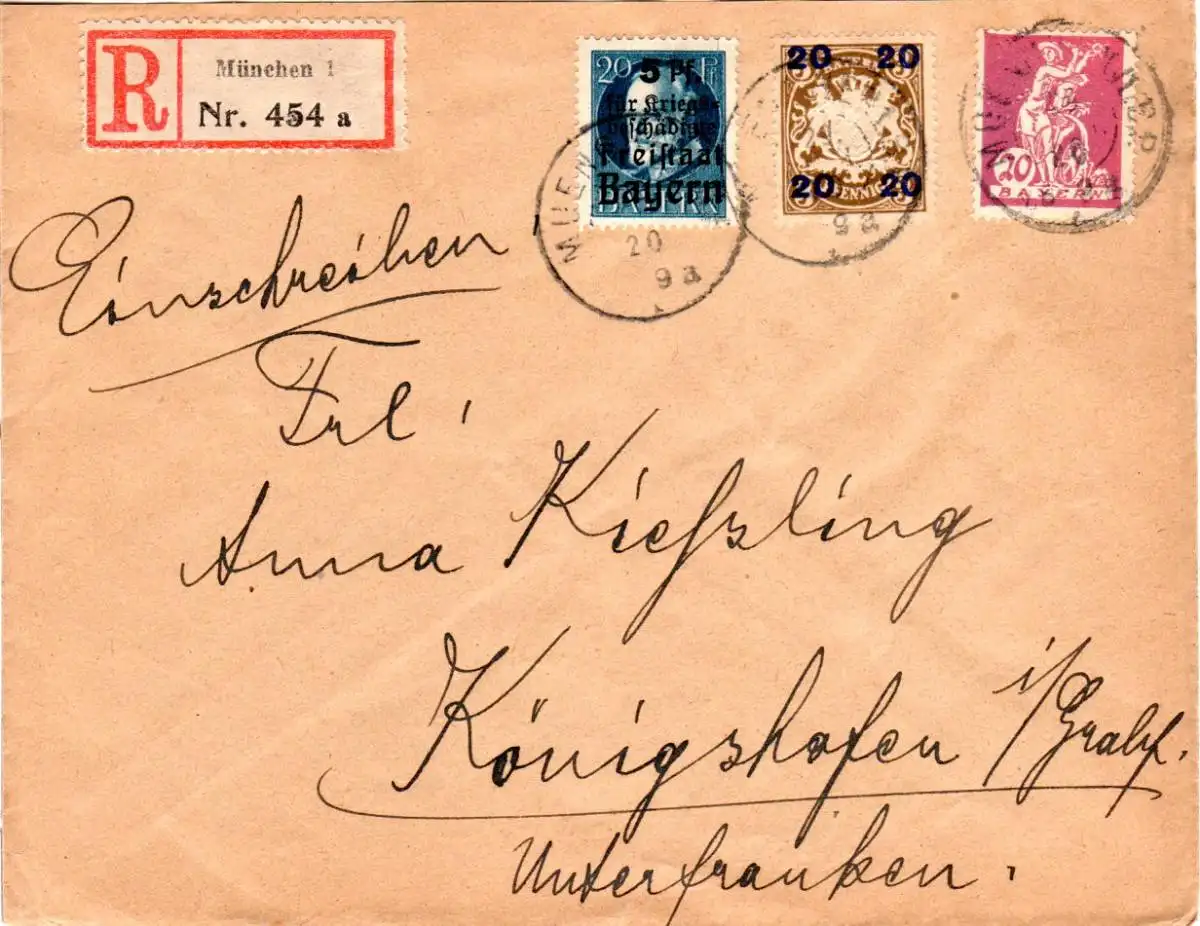 R
München 1
Nr. 454 a
20 Pf.
5 Pf.
für Kriegs-
beschädigte
Freistaat
Bayern
BAYERN
20 20
20 20
PFENNIG
20
BAYERN
MUEN
20
9a
9a
Einschreiben
Frl.
Anna Kießling
Königshofen i/Grabf.
Unterfranken.